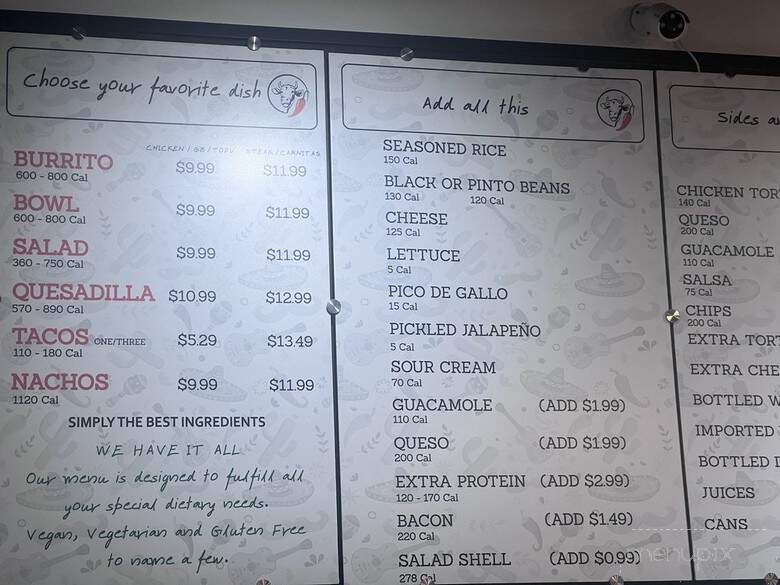 Choose your favorite dish
CHICKEN / GB / TOFU STEAK / CARNITAS
BURRITO $9.99 $11.99
600 - 800 Cal
BOWL $9.99 $11.99
600 - 800 Cal
SALAD $9.99 $11.99
360 - 750 Cal
QUESADILLA $10.99 $12.99
570 - 890 Cal
TACOS ONE/THREE $5.29 $13.49
110 - 180 Cal
NACHOS $9.99 $11.99
1120 Cal
SIMPLY THE BEST INGREDIENTS
WE HAVE IT ALL
Our menu is designed to fulfill all
your special dietary needs.
Vegan, Vegetarian and Gluten Free
to name a few.
Add all this
SEASONED RICE
150 Cal
BLACK OR PINTO BEANS
130 Cal 120 Cal
CHEESE
125 Cal
LETTUCE
5 Cal
PICO DE GALLO
15 Cal
PICKLED JALAPEÑO
5 Cal
SOUR CREAM
70 Cal
GUACAMOLE (ADD $1.99)
110 Cal
QUESO (ADD $1.99)
200 Cal
EXTRA PROTEIN (ADD $2.99)
120 - 170 Cal
BACON (ADD $1.49)
220 Cal
SALAD SHELL (ADD $0.99)
278 Cal
Sides a
CHICKEN TOR
140 Cal
QUESO
200 Cal
GUACAMOLE
110 Cal
SALSA
75 Cal
CHIPS
200 Cal
EXTRA TORT
EXTRA CHE
BOTTLED W
IMPORTED
BOTTLED
JUICES
CANS
menupix